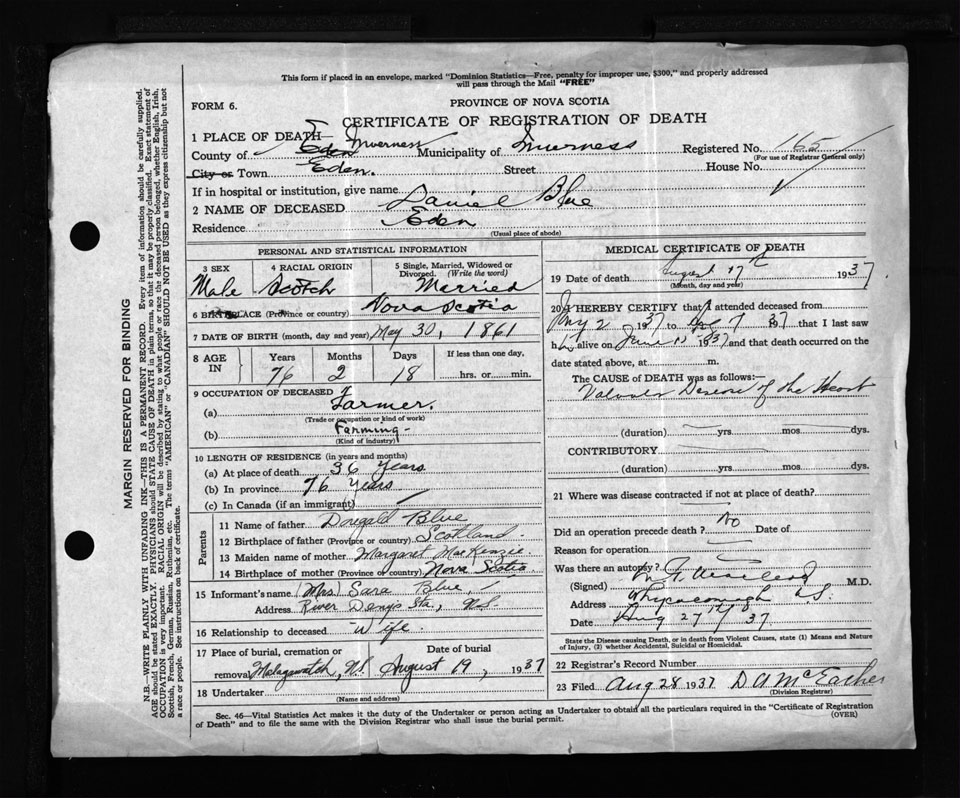 This form if placed in an envelope, marked "Dominion Statistics—Free, penalty for improper use, $300," and properly addressed
will pass through the Mail "FREE"
FORM 6.
PROVINCE OF NOVA SCOTIA
CERTIFICATE OF REGISTRATION OF DEATH
1 PLACE OF DEATH
County of Eden Inverness Municipality of Inverness Registered No. 165
(For use of Registrar General only)
City or Town Eden. Street House No.
If in hospital or institution, give name
2 NAME OF DECEASED Daniel Blue
Residence Eden
(Usual place of abode)
PERSONAL AND STATISTICAL INFORMATION
3 SEX Male
4 RACIAL ORIGIN Scotch
5 Single, Married, Widowed or Divorced. (Write the word) Married
6 BIRTHPLACE (Province or country) Nova Scotia
7 DATE OF BIRTH (month, day and year) May 30, 1861
8 AGE IN Years 76 Months 2 Days 18 If less than one day, hrs. or min.
9 OCCUPATION OF DECEASED
(a) Farmer.
(Trade or occupation or kind of work)
(b) Farming
(Kind of industry)
10 LENGTH OF RESIDENCE (in years and months)
(a) At place of death 36 Years
(b) In province 76 Years
(c) In Canada (if an immigrant)
Parents
11 Name of father Dougald Blue
12 Birthplace of father (Province or country) Scotland.
13 Maiden name of mother Margaret MacKenzie
14 Birthplace of mother (Province or country) Nova Scotia
15 Informant's name (Mrs) Sara Blue,
Address River Denys Sta, N.S.
16 Relationship to deceased Wife.
17 Place of burial, cremation or removal Malagawatch, N.S. Date of burial August 19, 1937
18 Undertaker
(Name and address)
MEDICAL CERTIFICATE OF DEATH
19 Date of death August 17th 1937
(Month, day and year)
20 I HEREBY CERTIFY that I attended deceased from
1937 to 1937 that I last saw
h alive on 1937 and that death occurred on the
date stated above, at m.
The CAUSE of DEATH was as follows:
Valvular Disease of the Heart
(duration) yrs. mos. dys.
CONTRIBUTORY
(duration) yrs. mos. dys.
21 Where was disease contracted if not at place of death?
Did an operation precede death? No Date of
Reason for operation
Was there an autopsy?
(Signed) M.D.
Address Whycocomagh N.S.
Date Aug 27th 37
State the Disease causing Death, or in death from Violent Causes, state (1) Means and Nature
of Injury, (2) whether Accidental, Suicidal or Homicidal.
22 Registrar's Record Number
23 Filed Aug 28 1937 D A McEachen
(Division Registrar)
Sec. 46—Vital Statistics Act makes it the duty of the Undertaker or person acting as Undertaker to obtain all the particulars required in the "Certificate of Registration
of Death" and to file the same with the Division Registrar who shall issue the burial permit. (OVER)
MARGIN RESERVED FOR BINDING
N.B.—WRITE PLAINLY WITH UNFADING INK—THIS IS A PERMANENT RECORD. Every item of information should be carefully supplied.
AGE should be stated EXACTLY. PHYSICIANS should STATE CAUSE OF DEATH in plain terms, so that it may be properly classified. Exact statement of
OCCUPATION is very important. RACIAL ORIGIN will be described by stating to what people or race the deceased person belonged, whether English, Irish,
Scottish, French, German, Russian, Ruthenian, etc. The terms "AMERICAN" or "CANADIAN" SHOULD NOT BE USED as they express citizenship but not
a race or people. See instructions on back of certificate.